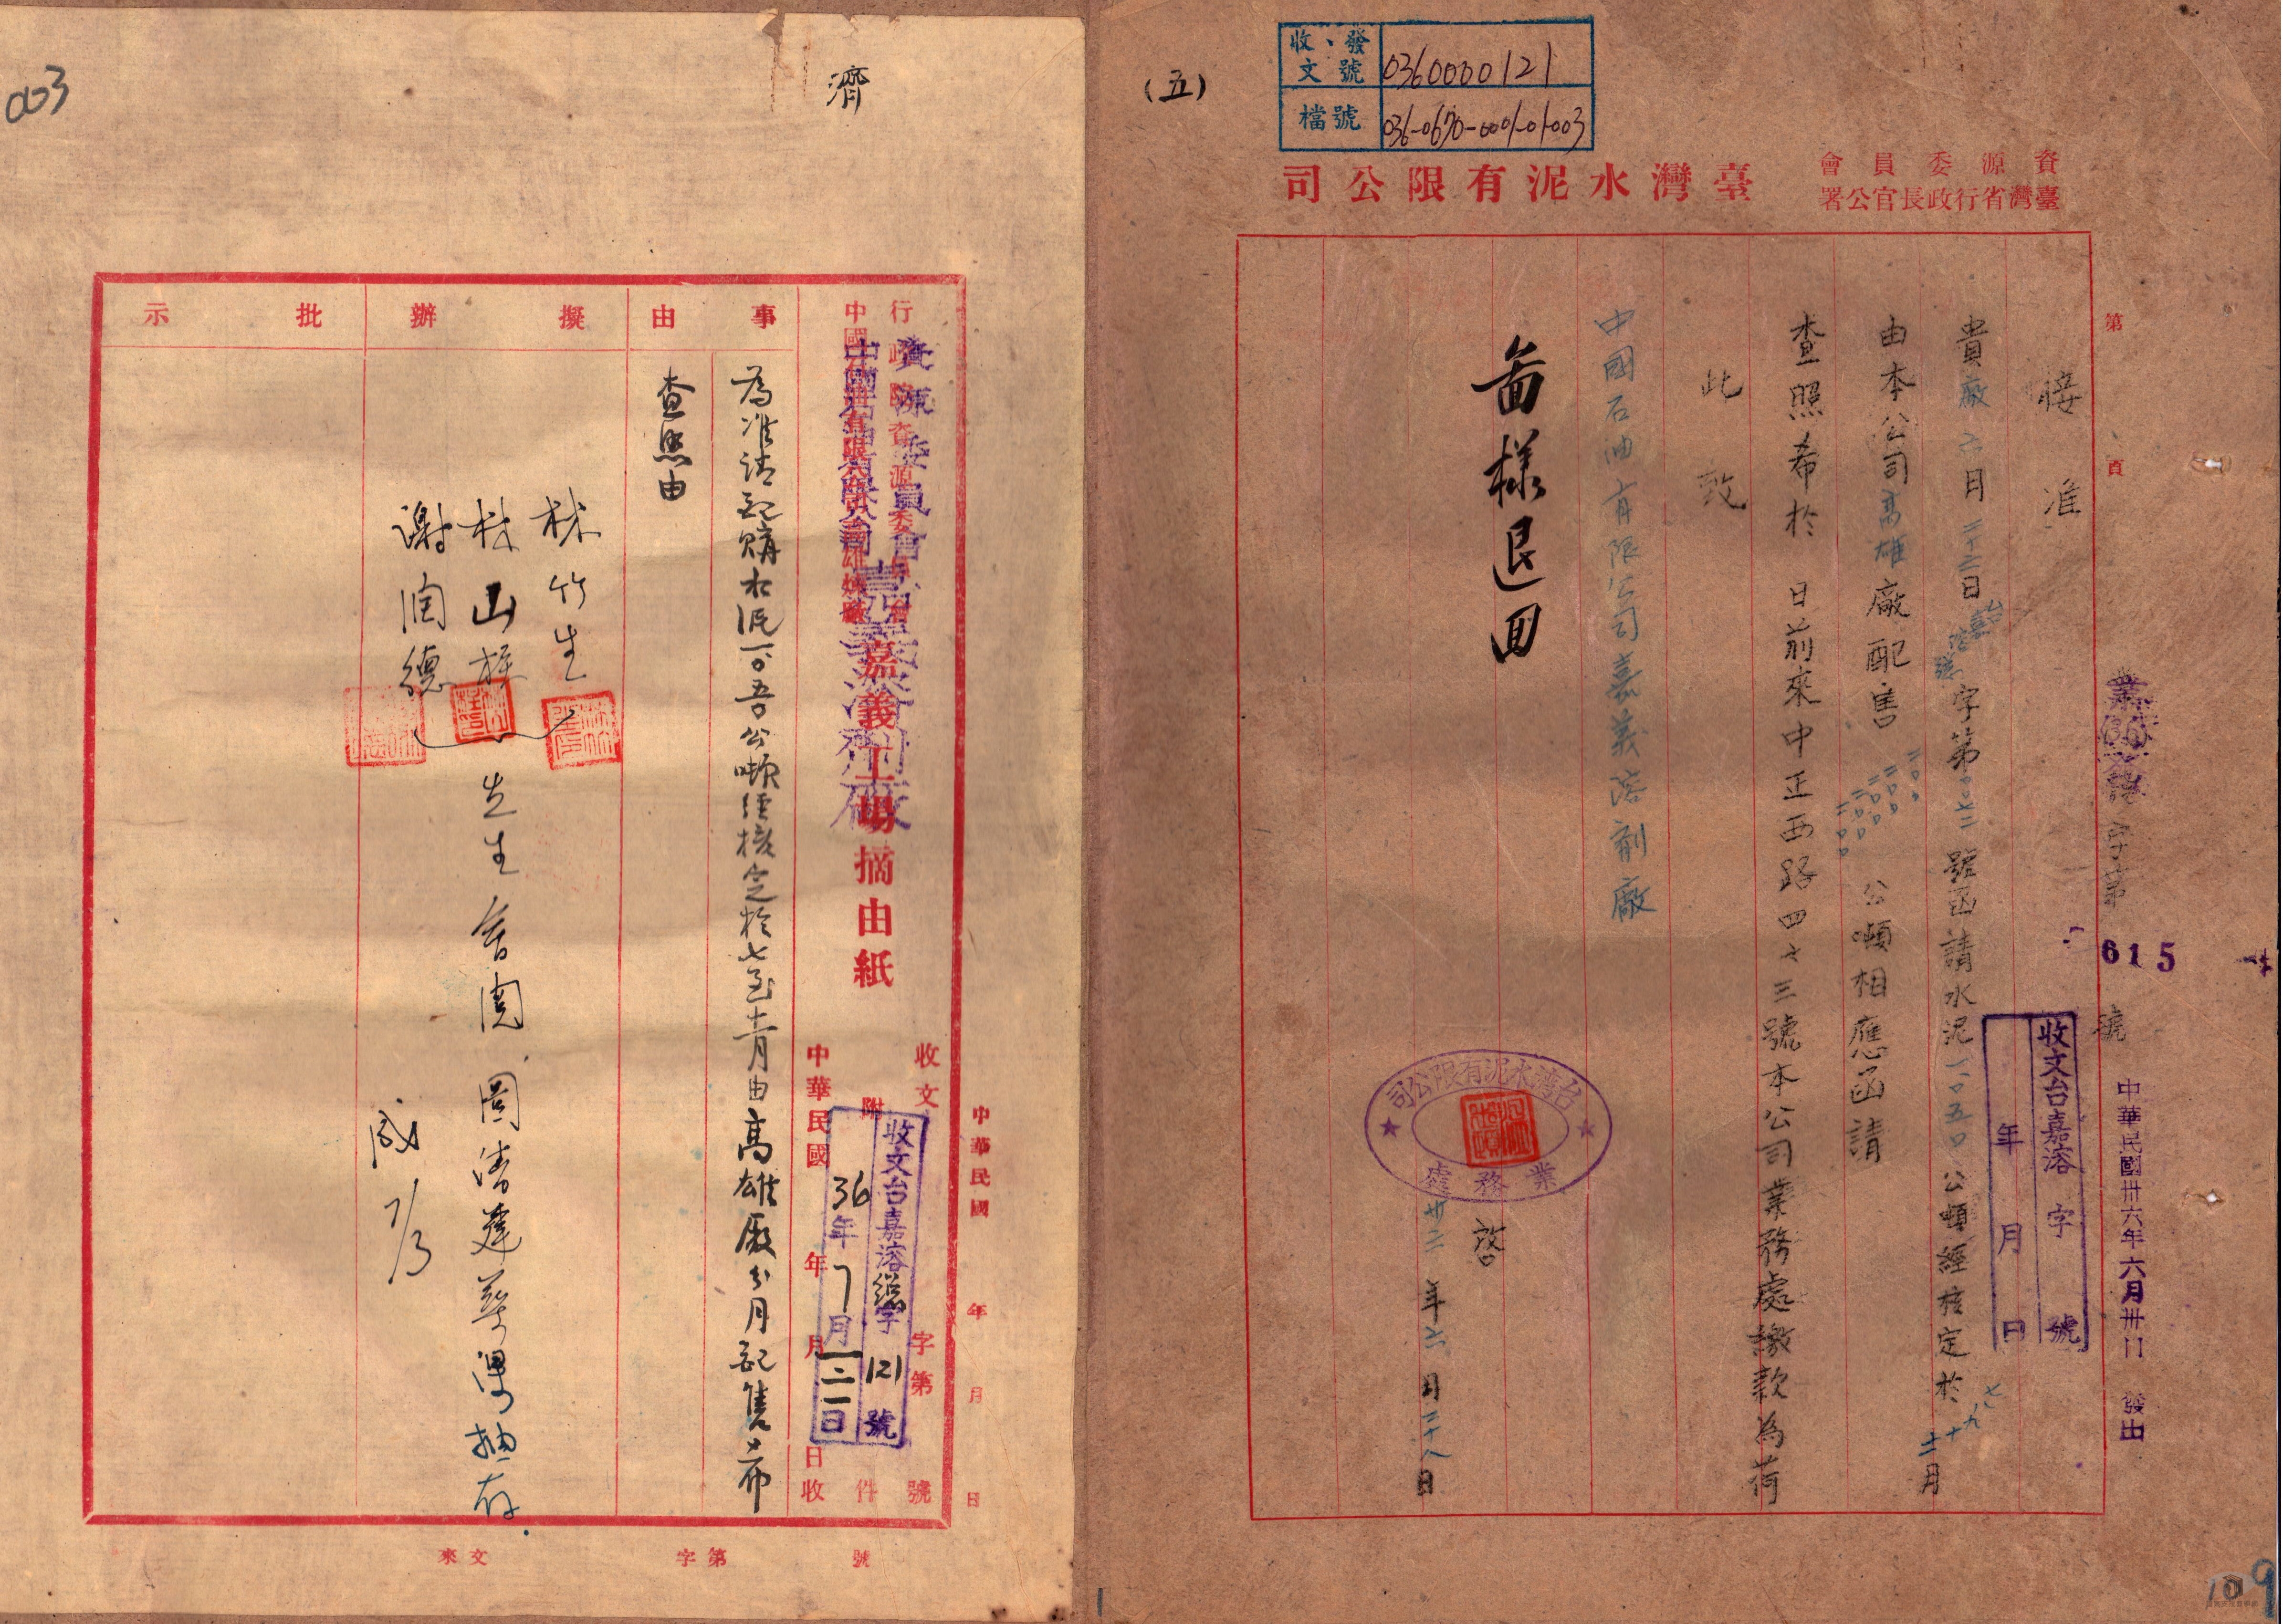 (五)
收、發文號 0360000121
檔號 036-0670-0001-01-003
資源委員會
臺灣省行政長官公署
臺灣水泥有限公司
第 頁
業(36)字第 615 號
中華民國卅六年六月卅日 發出
收文台嘉溶 字 號
年 月 日
接准
貴廠六月二十二日台嘉溶總字第二七〇二號函請水泥一〇五〇公噸經核定於七九十十二月
由本公司高雄廠配售 公噸相應函請
查照希於 日前來中正西路四七三號本公司業務處繳款為荷
此致
中國石油有限公司嘉義溶劑廠
台灣水泥有限公司
業務處
啓
卅六年六月二十八日
圖樣退回
109
003
濟
行政院資源委員會
資源委員會
中國石油有限公司
嘉義溶劑廠
嘉義工場摘由紙
收文 字第 號
附 件
中華民國 年 月 日收
收文台嘉溶總字121號
36年7月2日
中華民國 年 月 日
事由
為准請配購水泥一〇五〇公噸經核定於七至十二月由高雄廠分月配售希
查照由
擬辦
林竹生
林山
謝潤德
先生會閱
抽存
批示
7/3
來文 字第 號